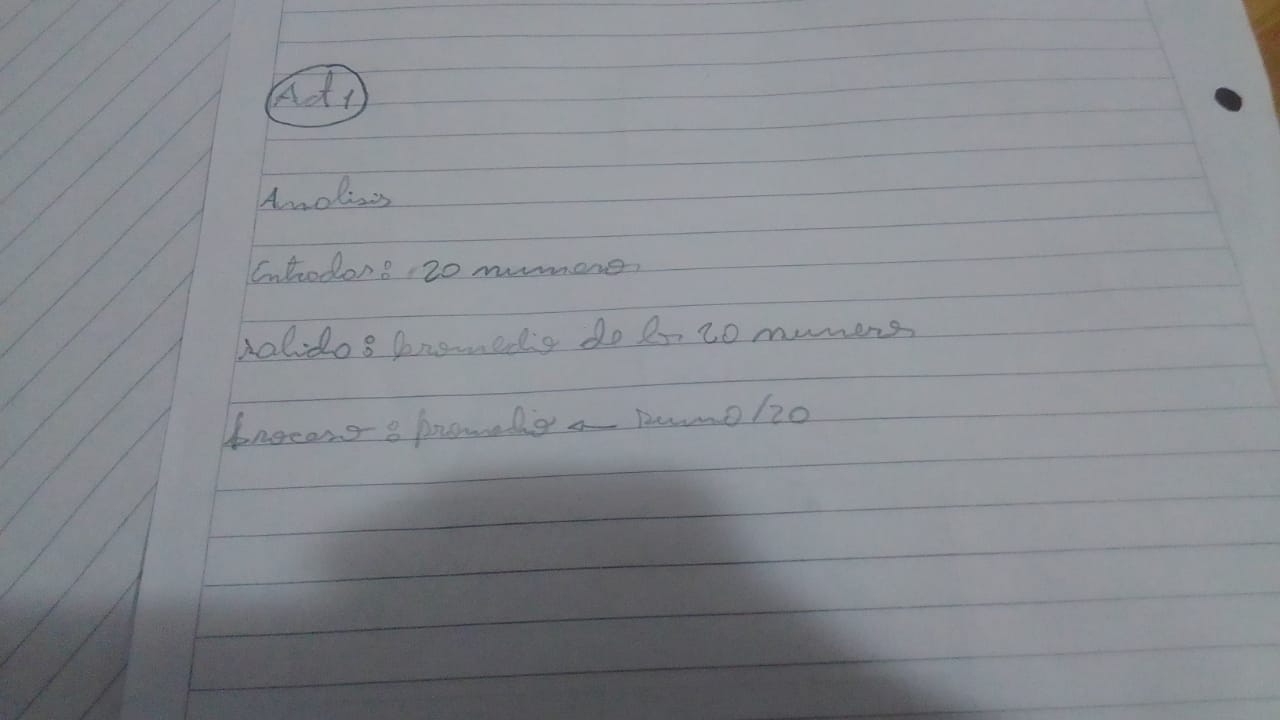 Act 1
Analisis
Entradas: 20 numeros
salida: promedio de los 20 numeros
proceso: promedio ← suma/20